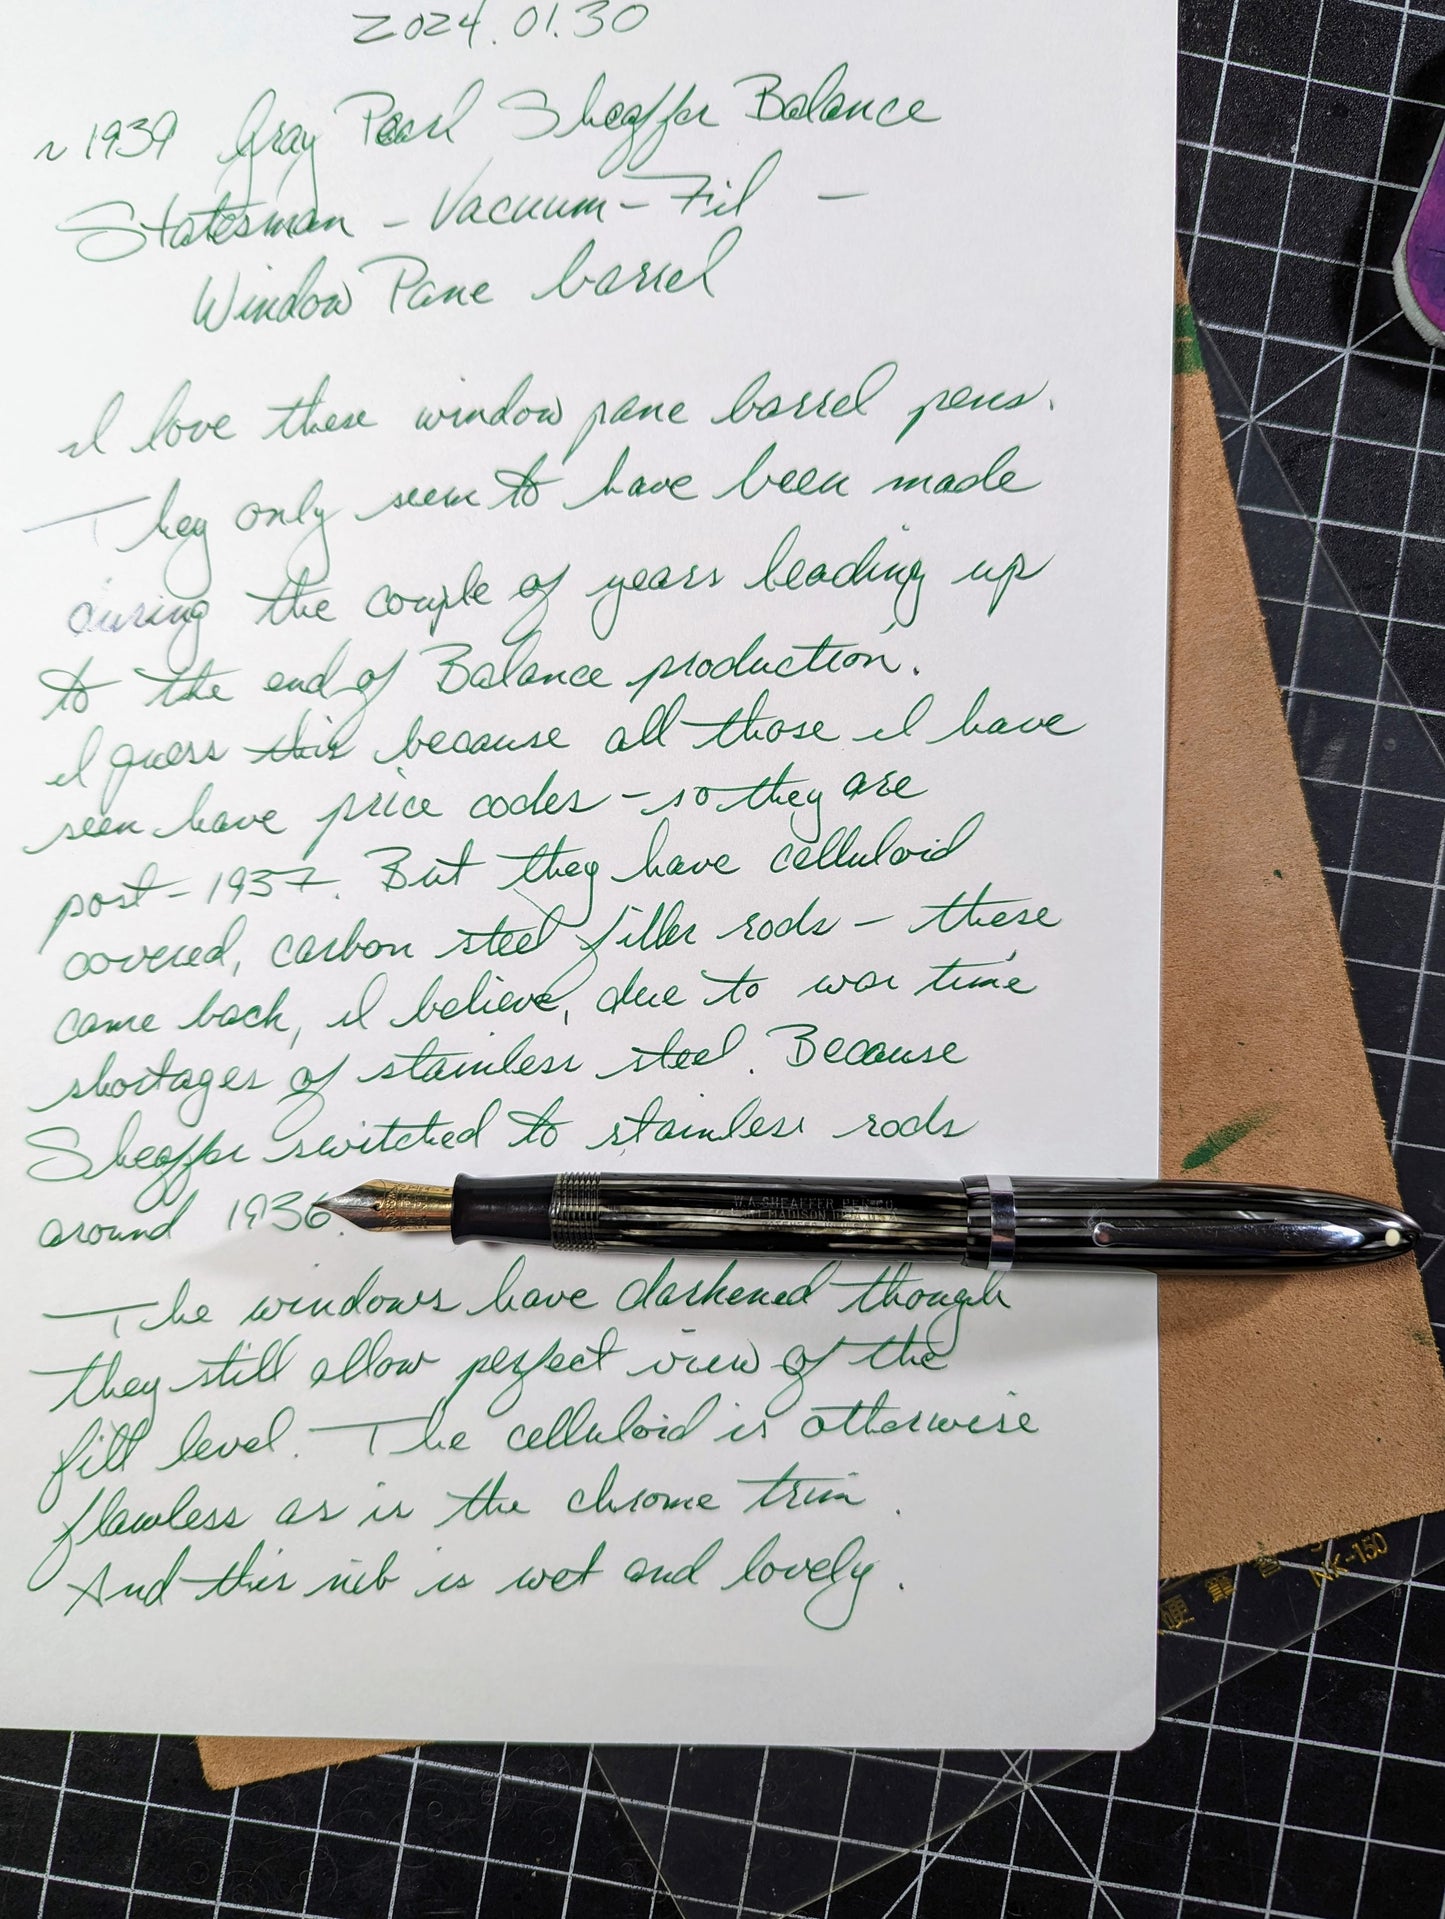 2024.01.30
~1939 Gray Pearl Sheaffer Balance
Statesman - Vacuum-Fil -
Window Pane barrel
I love these window pane barrel pens.
They only seem to have been made
during the couple of years leading up
to the end of Balance production.
I guess this because all those I have
seen have price codes - so they are
post-1937. But they have celluloid
covered, carbon steel filler rods - these
came back, I believe, due to war time
shortages of stainless steel. Because
Sheaffer switched to stainless rods
around 1936.
W.A.SHEAFFER PEN CO.
The windows have darkened though
they still allow perfect view of the
fill level. The celluloid is otherwise
flawless as is the chrome trim.
And this nib is wet and lovely.
NK-150